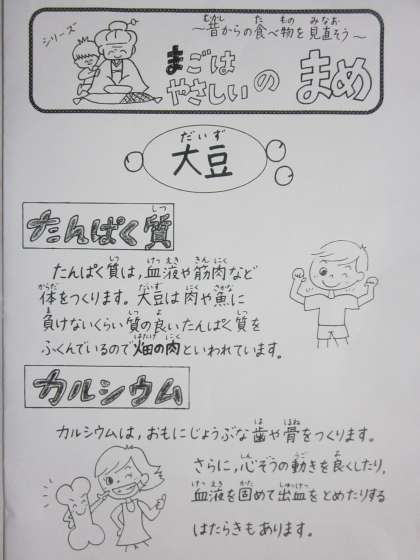 シリーズ
～昔からの食べ物を見直そう～
まごは
やさしいの まめ
大豆
たんぱく質
たんぱく質は,血液や筋肉など
体をつくります。大豆は肉や魚に
負けないくらい質の良いたんぱく質を
ふくんでいるので畑の肉といわれています。
カルシウム
カルシウムは,おもにじょうぶな歯や骨をつくります。
さらに,心ぞうの動きを良くしたり,
血液を固めて出血をとめたりする
はたらきもあります。